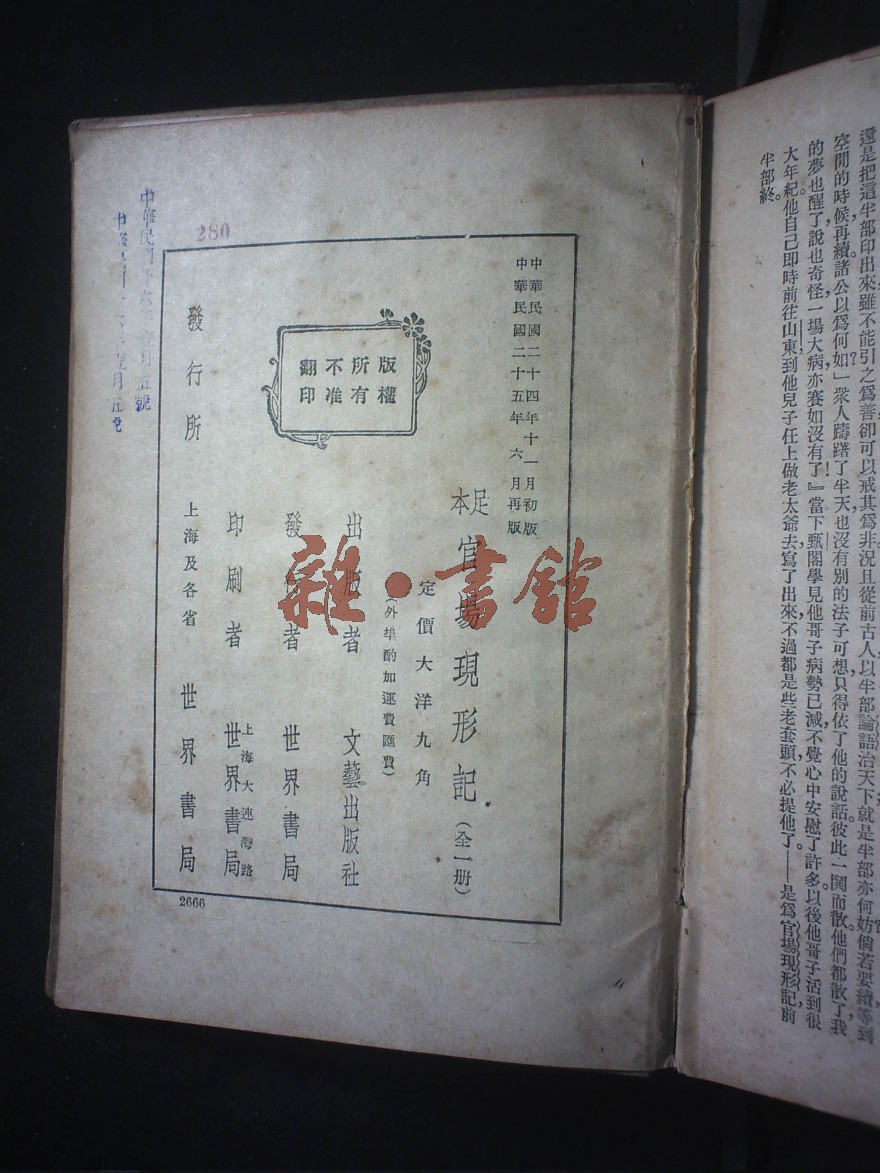 還是把這半部印出來雖不能引之爲善卻可以戒其爲非況且從前古人以半部論語治天下就是半部亦何妨倘若要續等到
空閒的時候再續諸公以爲何如」衆人躊躇了半天也沒有別的法子可想只得依了他的說話彼此一鬨而散他們都散了我
的夢也醒了說也奇怪一場大病亦賽如沒有了』當下甄閣學見他哥子病勢已減不覺心中安慰了許多以後他哥子活到很
大年紀他自己卽時前往山東到他兒子任上做老太爺去寫了出來不過都是些老套頭不必提他了——是爲官場現形記前
半部終。
中華民國二十四年十一月初版
中華民國二十五年六月再版
足本官場現形記(全一册)
定價大洋九角
(外埠酌加運費匯費)
版權
所有
不准
翻印
出版者 文藝出版社
發行者 世界書局
印刷者 上海大連灣路 世界書局
發行所 上海及各省 世界書局
280
2666
雜·書館